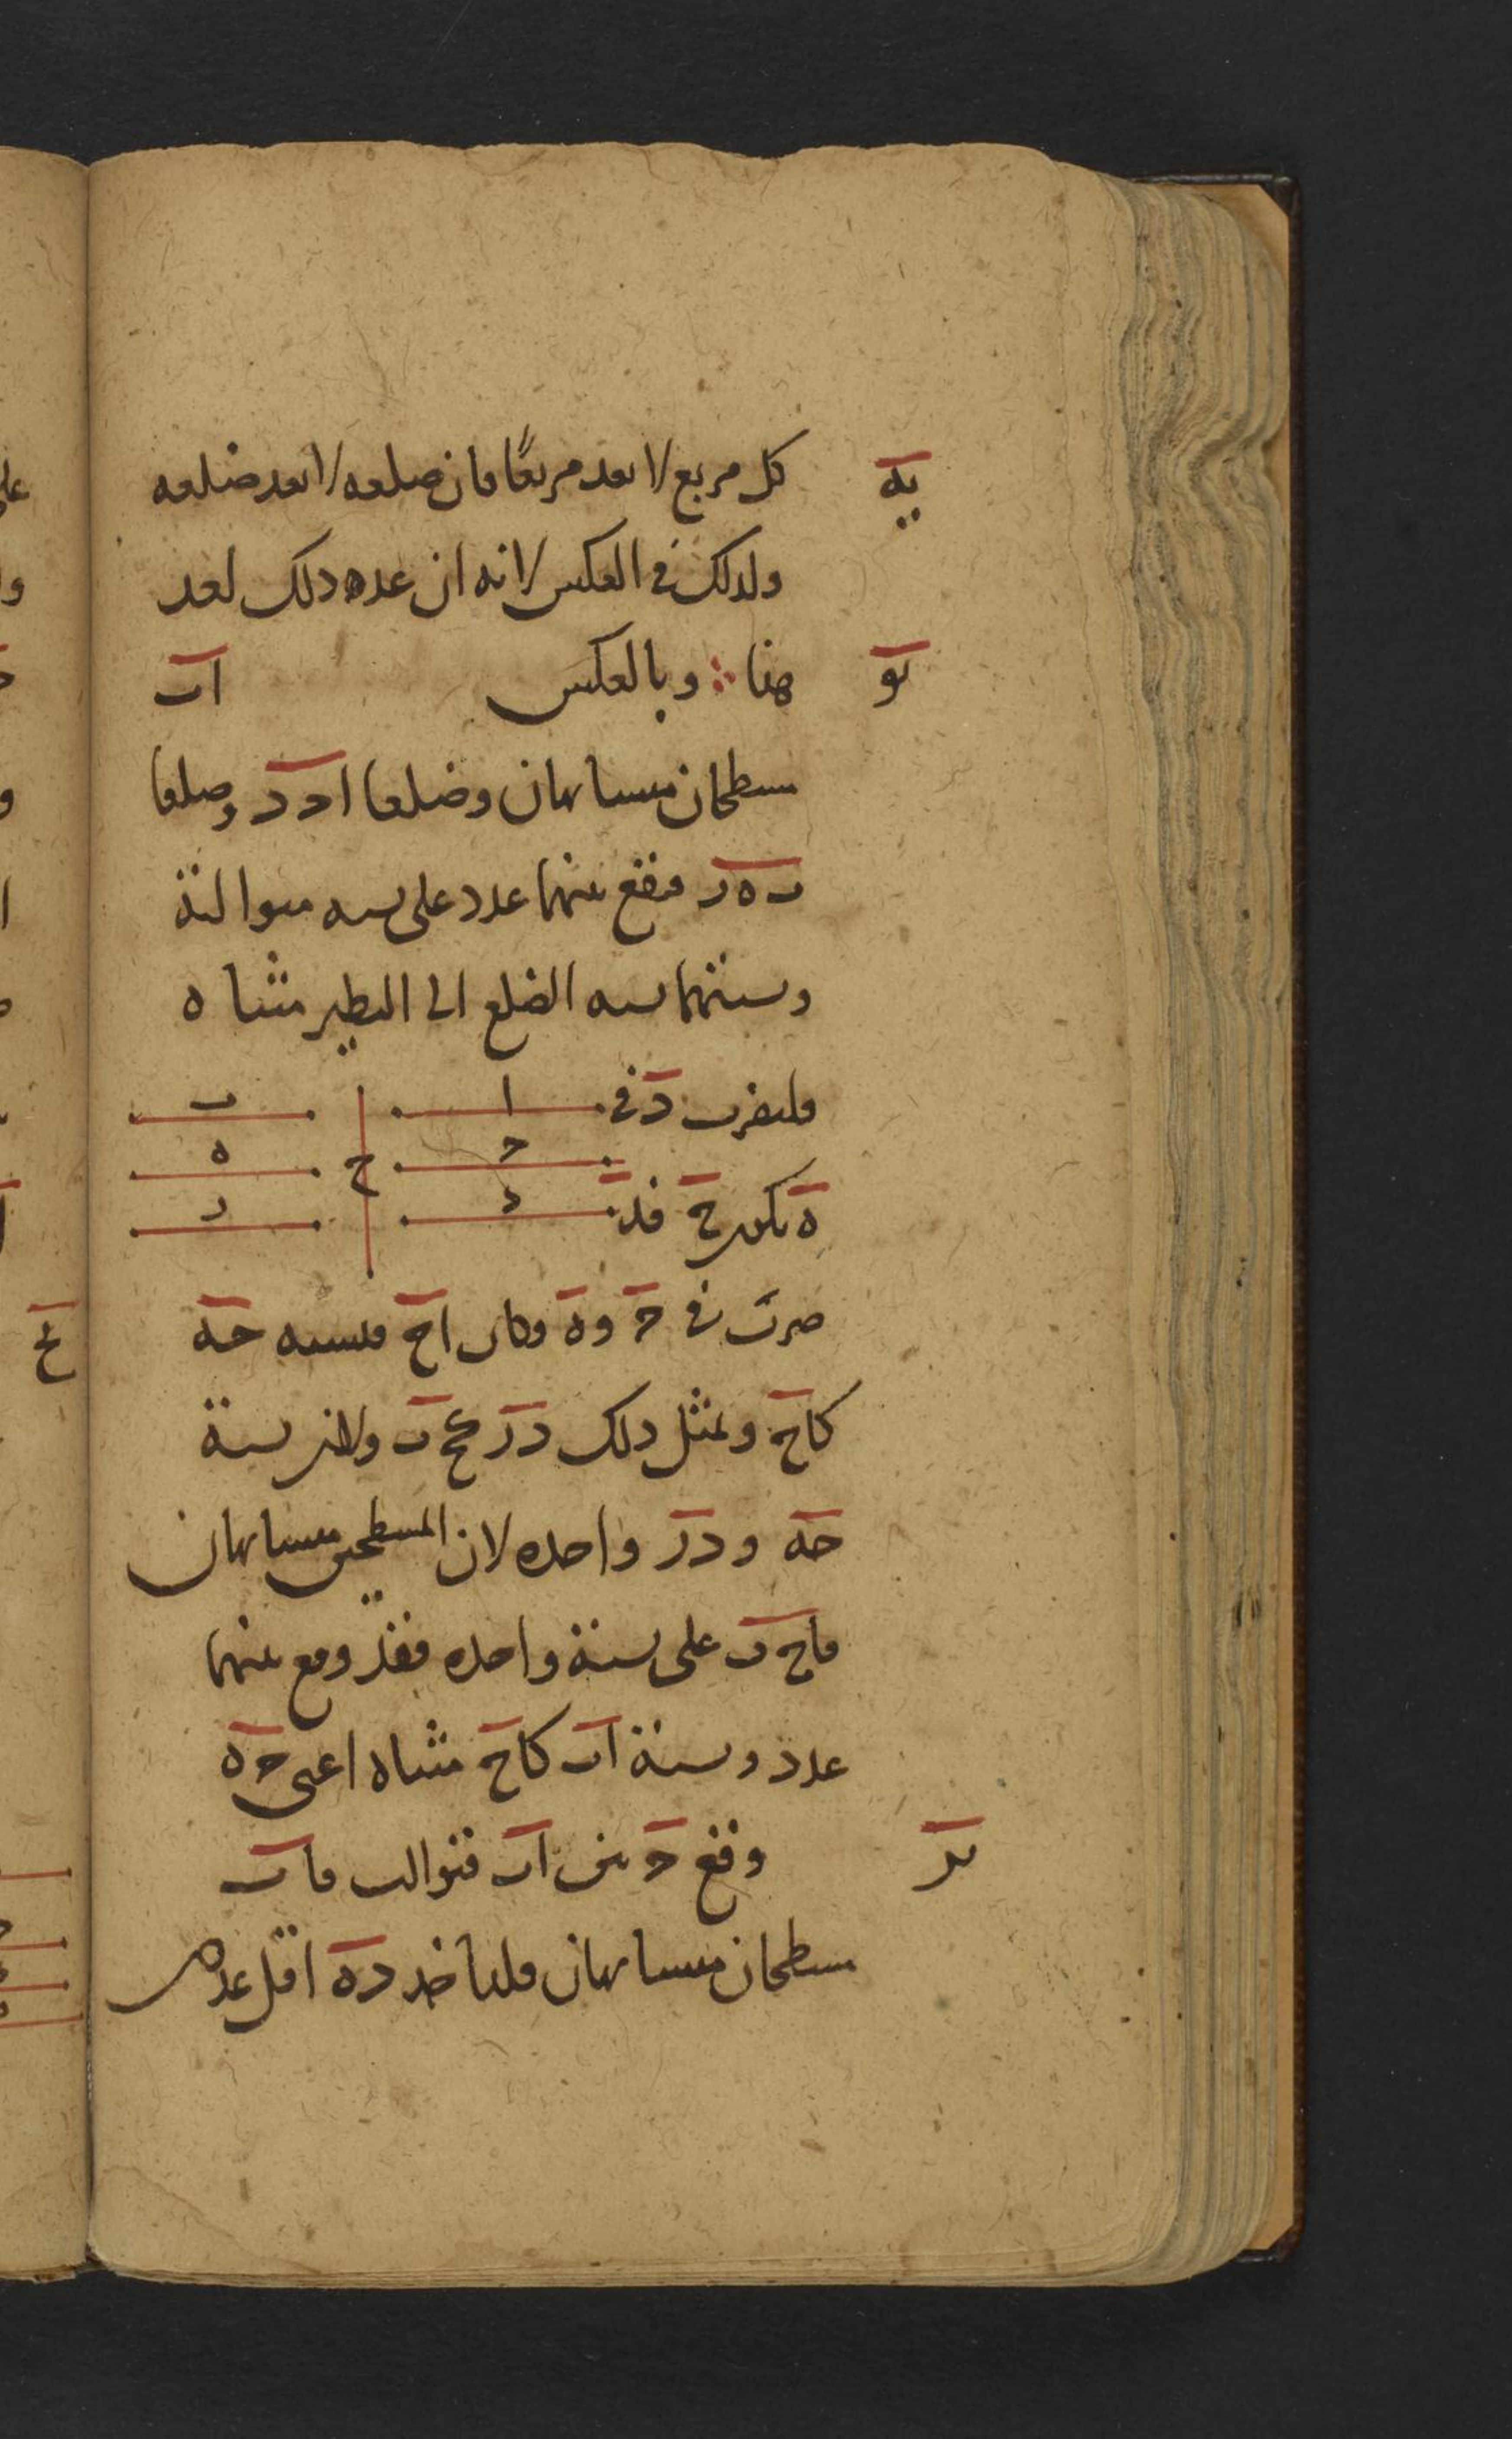 يه
كل مربع لا يعد مربعًا فان ضلعه لا يعد ضلعه
ولذلك في العكس لانه ان عده ذلك لعد
يو
هذا ∴ وبالعكس اب
سطحان متشابهان وضلعا ا ح د وضلعا
ب ه ر فيقع بينهما عدد على نسبة متوالية
ونسبتهما نسبة الضلع الى النظير مثناة
فليضرب د في
ا ب
ح ه
د ر
ح
ه يكون ح فد
ضرب في ح و ه وكان ا ح فنسبة حه
كاح وبمثل ذلك در ح ب ولان نسبة
حه و در واحده لان المسطحين متشابهان
فاح ب على نسبة واحده فقد وقع بينهما
عدد ونسبة اب كاح مثناة اعنى حه
ير
وقع ح بين اب فتوالت فاب
سطحان متشابهان فلناخذ ده اقل عددين